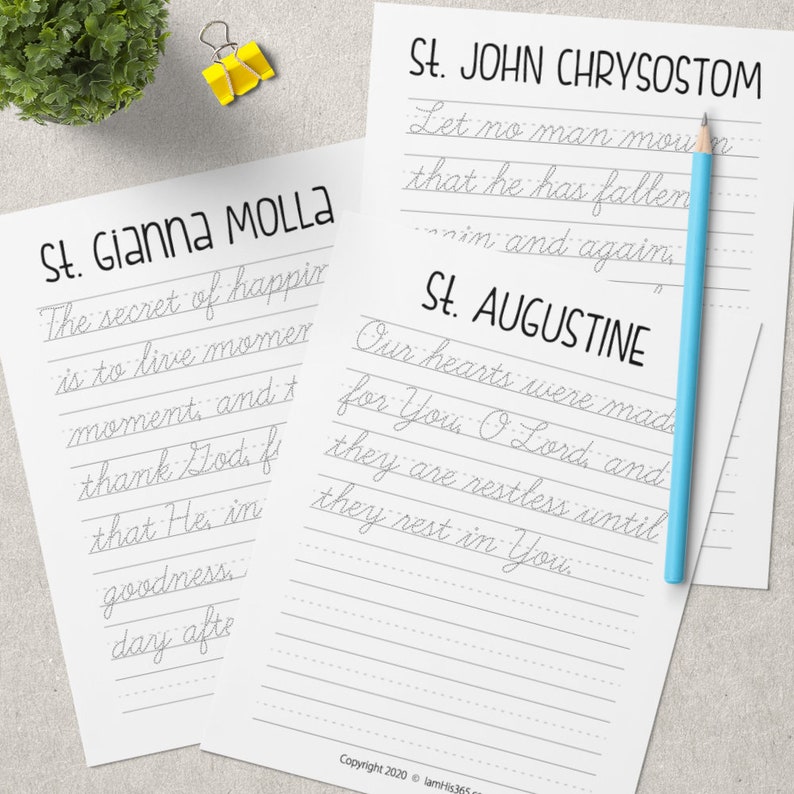 St. JOHN CHRYSOSTOM
Let no man mourn
that he has fallen
again and again,
St. Gianna MOLLA
The secret of happin
is to live momen
moment, and t
thank God, f
that He, in
goodness,
day afte
St. AUGUSTINE
Our hearts were made
for You, O Lord, and
they are restless until
they rest in You.
Copyright 2020 © IamHis365.co